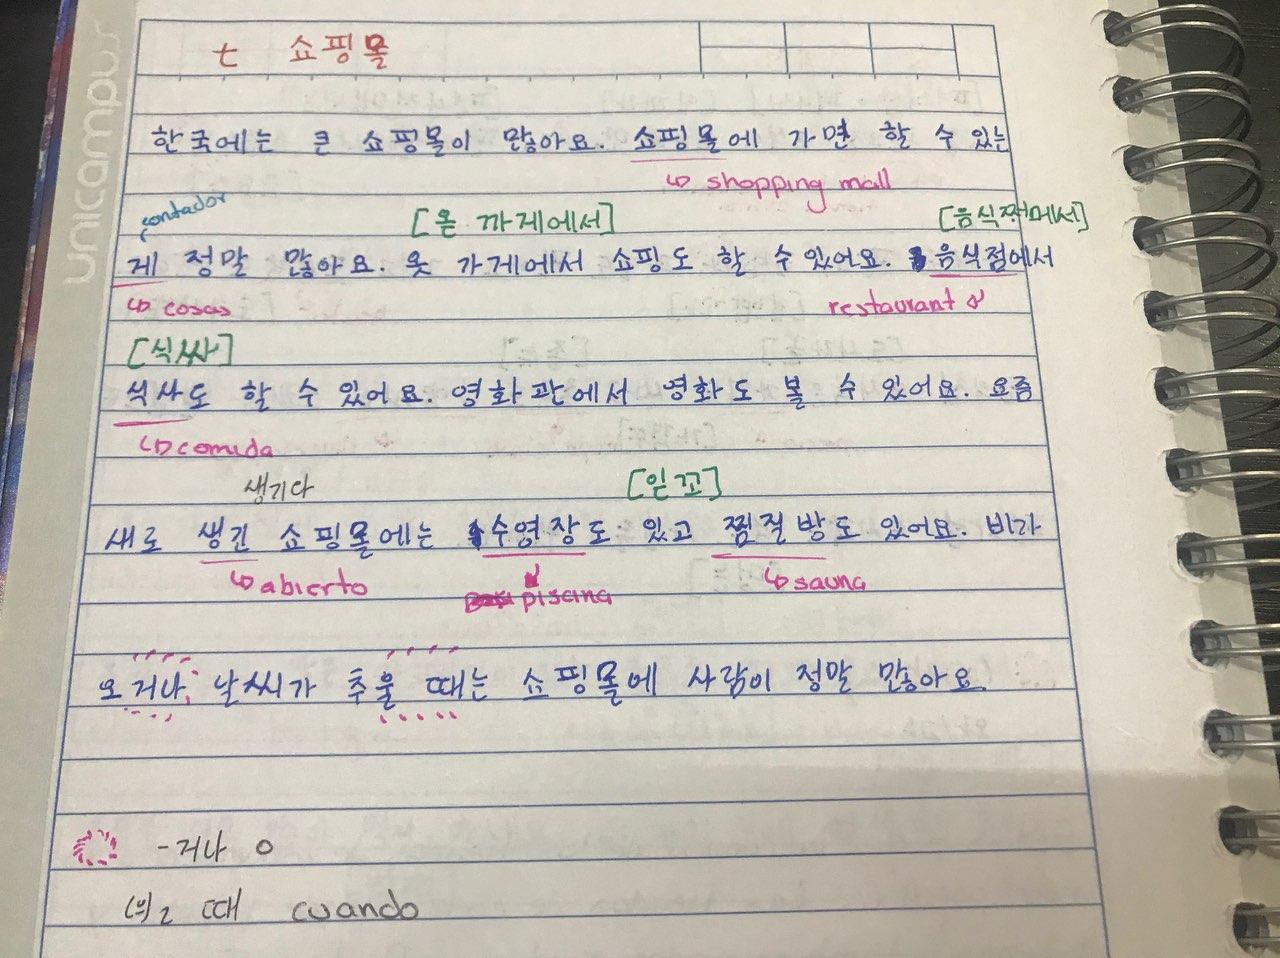 unicampus
t 쇼핑몰
한국에는 큰 쇼핑몰이 많아요. 쇼핑몰에 가면 할 수 있는
↳ shopping mall
contador
[옫 까게에서] [음식쩌메서]
게 정말 많아요. 옷 가게에서 쇼핑도 할 수 있어요. 음식점에서
↳ cosas restaurant
[식싸]
식사도 할 수 있어요. 영화관에서 영화도 볼 수 있어요. 요즘
↳ comida
생기다 [읻꼬]
새로 생긴 쇼핑몰에는 수영장도 있고 찜질방도 있어요. 비가
↳ abierto piscina ↳ sauna
오거나, 날씨가 추울 때는 쇼핑몰에 사람이 정말 많아요.
-거나 o
(으)ㄹ 때 cuando